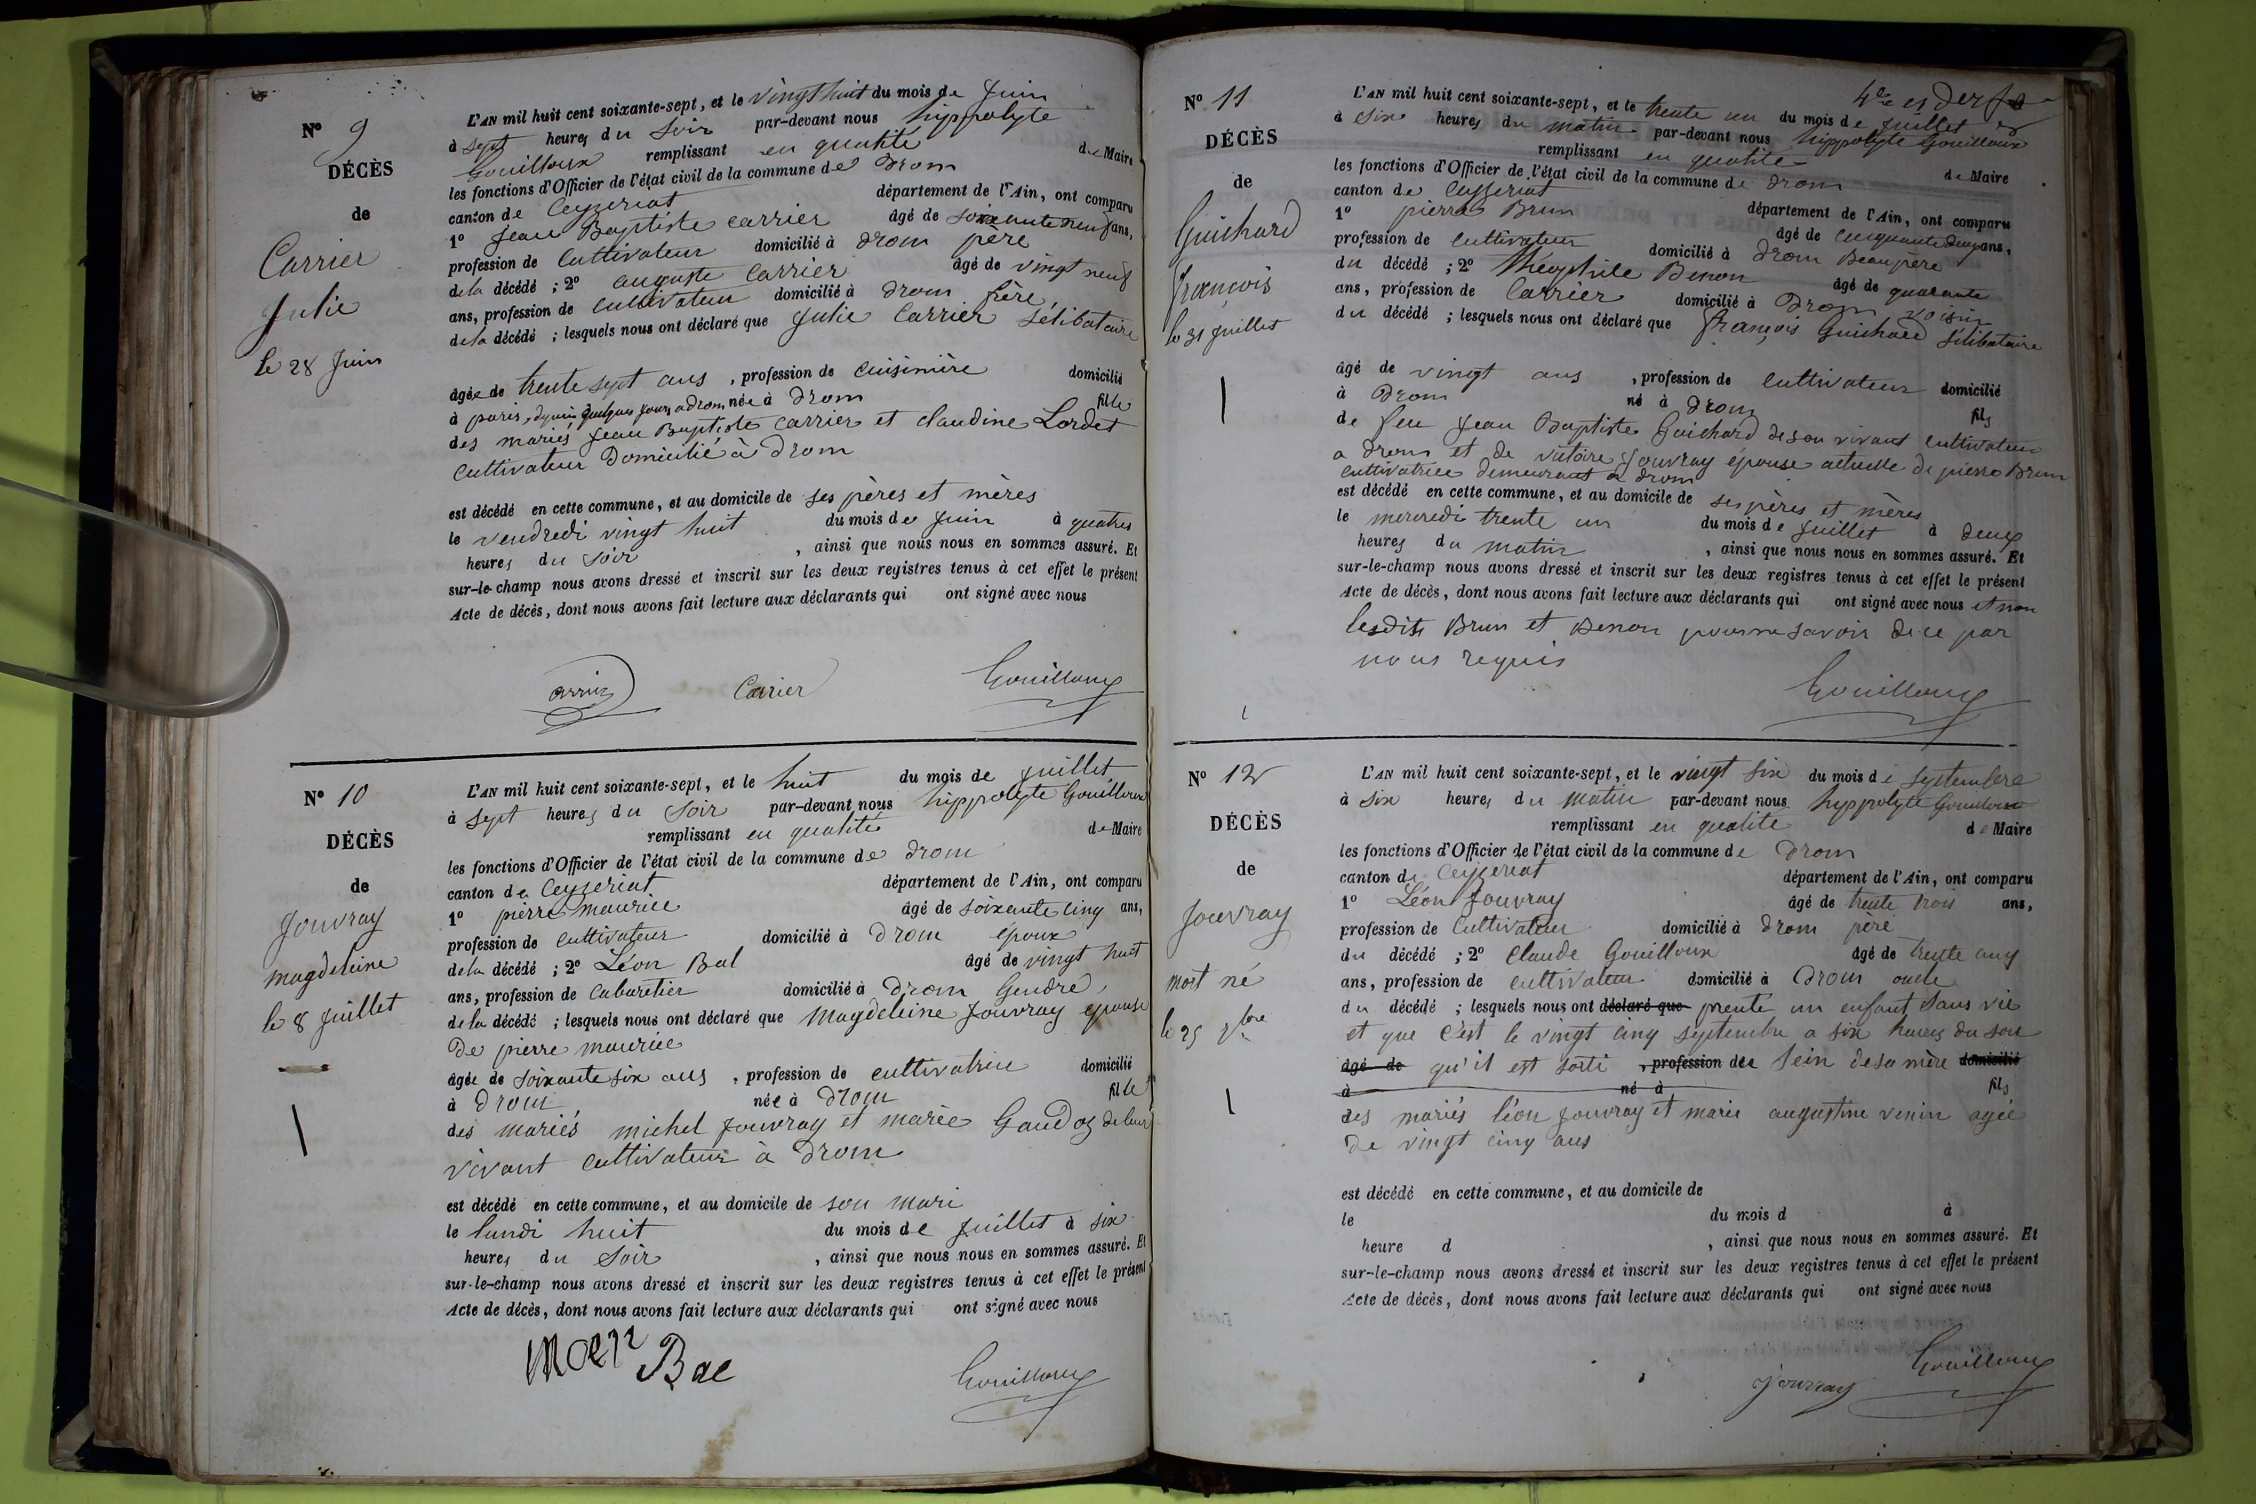 N° 9
DÉCÈS
de
Carrier
Julie
le 28 Juin
L'AN mil huit cent soixante-sept, et le vingt huit du mois de Juin
à sept heures du Soir par-devant nous hippolyte
Gouilloux remplissant en qualité de Maire
les fonctions d'Officier de l'état civil de la commune de Drom
canton de Ceyzeriat département de l'Ain, ont comparu
1° Jean Baptiste Carrier âgé de soixante neuf ans,
profession de Cultivateur domicilié à Drom père
de la décédé ; 2° auguste Carrier âgé de vingt neuf
ans, profession de cultivateur domicilié à Drom frère
de la décédé ; lesquels nous ont déclaré que Julie Carrier Sélibataire
âgée de trente sept ans , profession de Cuisinière domicilié
à paris, depuis quelques jours a drom, née à Drom fille
des mariés Jean Baptiste Carrier et Claudine Lordet
Cultivateur Domicilié à Drom
est décédé en cette commune, et au domicile de ses pères et mères
le vendredi vingt huit du mois de Juin à quatres
heures du Soir , ainsi que nous nous en sommes assuré. Et
sur-le-champ nous avons dressé et inscrit sur les deux registres tenus à cet effet le présent
Acte de décès, dont nous avons fait lecture aux déclarants qui ont signé avec nous
Carrier Gouilloux
N° 10
DÉCÈS
de
Jouvray
magdeleine
le 8 Juillet
L'AN mil huit cent soixante-sept, et le huit du mois de Juillet
à sept heures du Soir par-devant nous hippolyte Gouilloux
remplissant en qualité de Maire
les fonctions d'Officier de l'état civil de la commune de Drom
canton de Ceyzeriat département de l'Ain, ont comparu
1° pierre maurice âgé de soixante cinq ans,
profession de Cultivateur domicilié à Drom époux
de la décédé ; 2° Léon Bal âgé de vingt huit
ans, profession de Cabaretier domicilié à Drom Gendre
de la décédé ; lesquels nous ont déclaré que Magdeleine Jouvray épouse
De pierre maurice
âgée de soixante six ans , profession de cultivatrice domicilié
à Drom née à Drom fille
des mariés michel Jouvray et marie Gaudoz de leur
vivant cultivateur à Drom
est décédé en cette commune, et au domicile de son mari
le lundi huit du mois de Juillet à six
heures du Soir , ainsi que nous nous en sommes assuré. Et
sur-le-champ nous avons dressé et inscrit sur les deux registres tenus à cet effet le présent
Acte de décès, dont nous avons fait lecture aux déclarants qui ont signé avec nous
Bal Gouilloux
N° 11
DÉCÈS
de
Guichard
françois
le 31 Juillet
L'AN mil huit cent soixante-sept, et le trente un du mois de Juillet
à Six heures du matin par-devant nous hippolyte Gouilloux
remplissant en qualité de Maire
les fonctions d'Officier de l'état civil de la commune de Drom
canton de Ceyzeriat département de l'Ain, ont comparu
1° pierre Brun âgé de cinquante deux ans,
profession de Cultivateur domicilié à Drom Beaupère
du décédé ; 2° théophile Benon âgé de quarante
ans, profession de Carrier domicilié à Drom voisin
du décédé ; lesquels nous ont déclaré que françois Guichard Sélibataire
âgé de vingt ans , profession de Cultivateur domicilié
à Drom né à Drom fils
de feu Jean Baptiste Guichard de son vivant cultivateur
a Drom et de victoire Jouvray épouse actuelle de pierre Brun
Cultivatrice demeurant à Drom
est décédé en cette commune, et au domicile de ses pères et mères
le mercredi trente un du mois de Juillet à deux
heures du matin , ainsi que nous nous en sommes assuré. Et
sur-le-champ nous avons dressé et inscrit sur les deux registres tenus à cet effet le présent
Acte de décès, dont nous avons fait lecture aux déclarants qui ont signé avec nous et non
lesdits Brun et Benon pour ne savoir de ce par
nous requis
Gouilloux
N° 12
DÉCÈS
de
Jouvray
mort né
le 25 7bre
L'AN mil huit cent soixante-sept, et le vingt six du mois de septembre
à six heures du matin par-devant nous hyppolyte Gouilloux
remplissant en qualité de Maire
les fonctions d'Officier de l'état civil de la commune de Drom
canton de Ceyzeriat département de l'Ain, ont comparu
1° Léon Jouvray âgé de trente trois ans,
profession de Cultivateur domicilié à Drom père
du décédé ; 2° Claude Gouilloux âgé de trente cinq
ans, profession de cultivateur domicilié à Drom oncle
du décédé ; lesquels nous ont déclaré que présenté un enfant sans vie
et que c'est le vingt cinq septembre a six heures du soir
âgé de qu'il est sorti , profession de du sein de sa mère domicilié
à né à fils
des mariés léon Jouvray et marie augustine venin agée
de vingt cinq ans
est décédé en cette commune, et au domicile de
le du mois d à
heure d , ainsi que nous nous en sommes assuré. Et
sur-le-champ nous avons dressé et inscrit sur les deux registres tenus à cet effet le présent
Acte de décès, dont nous avons fait lecture aux déclarants qui ont signé avec nous
Jouvray Gouilloux